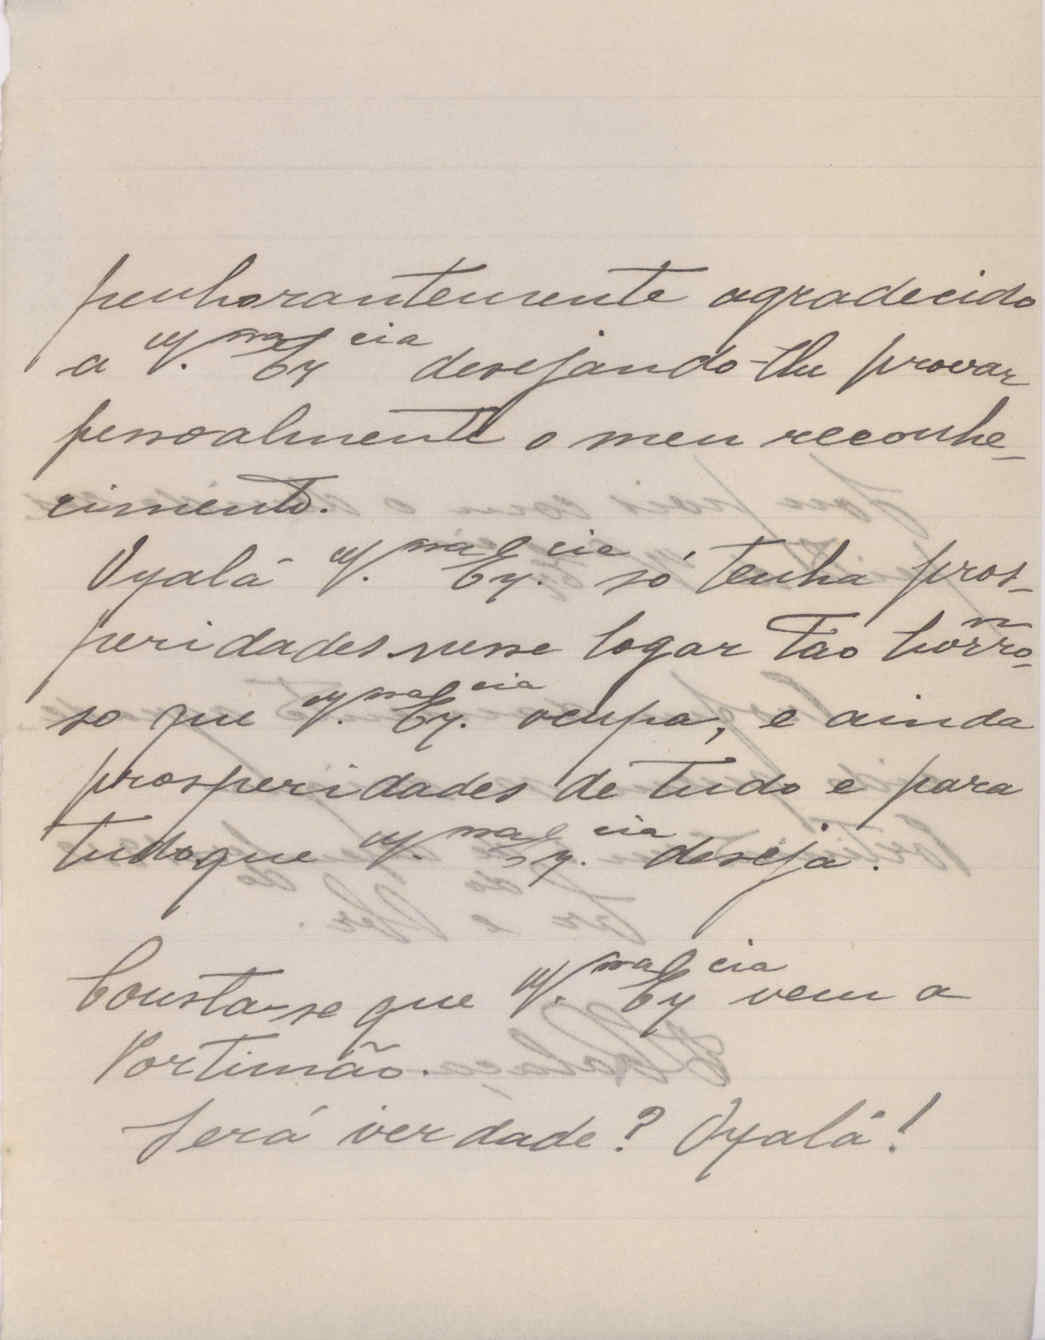 penhorantemente agradecido
a V. Exma cia desejando-lhe provar
pessoalmente o meu reconhe-
cimento.
Oxalá V. Exma cia só tenha pros-
peridades nesse logar tão honro-
so que V. Exma cia ocupa, e ainda
prosperidades de tudo e para
tudo que V. Exma cia deseja.
Consta-se que V. Exma cia vem a
Portimão.
Será verdade? Oxalá!